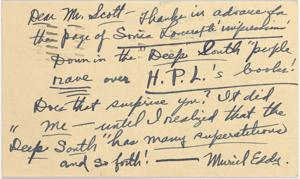 Dear Mr. Scott — Thanks in advance for
the page of Sonia Lovecraft's impressions
Down in the "Deep South" people
rave over H.P.L.'s books!
Does that surprise you? It did
me — until I realized that the
"Deep South" has many superstitions
and so forth! — Muriel Eddy